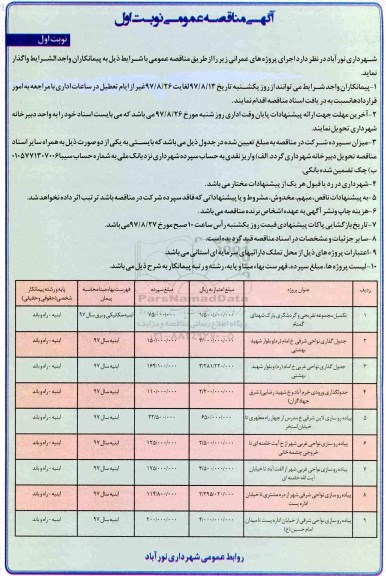 آگهی مناقصه عمومی نوبت اول
نوبت اول
شهرداری نورآباد در نظر دارد اجرای پروژه های عمرانی زیر را از طریق مناقصه عمومی با شرایط ذیل به پیمانکاران واجد الشرایط واگذار
نماید.
۱- پیمانکاران واجد شرایط می توانند از روز یکشنبه تاریخ ۹۷/۸/۱۳ لغایت ۹۷/۸/۲۶ غیر از ایام تعطیل در ساعات اداری با مراجعه به امور
قراردادها نسبت به دریافت اسناد مناقصه اقدام نمایند.
۲- آخرین مهلت جهت ارائه پیشنهادات پایان وقت اداری روز شنبه مورخ ۹۷/۸/۲۶ می باشد که می بایست اسناد خود را به واحد دبیرخانه
شهرداری تحویل نمایند.
۳- میزان سپرده شرکت در مناقصه به مبلغ تعیین شده در جدول ذیل می باشد که بایستی به یکی از دو صورت ذیل به همراه سایر اسناد
مناقصه تحویل دبیرخانه شهرداری گردد. الف) واریز نقدی به حساب سپرده شهرداری نزد بانک ملی به شماره حساب سیبا ۰۱۰۵۷۷۱۳۰۷۰۰۶
ب) چک تضمین شده بانکی.
۴- شهرداری در رد یا قبول هر یک از پیشنهادات مختار می باشد.
۵- به پیشنهادات ناقص، مبهم، مخدوش، مشروط و یا پیشنهاداتی که فاقد سپرده شرکت در مناقصه باشد ترتیب اثر داده نخواهد شد.
۶- هزینه چاپ و نشر آگهی به عهده اشخاص برنده مناقصه می باشد.
۷- تاریخ بازگشایی پاکات پیشنهادی قیمت روز یکشنبه راس ساعت ۱۰ صبح مورخ ۹۷/۸/۲۷ می باشد.
۸- سایر جزئیات و مشخصات در اسناد مناقصه قید گردیده است.
۹- اعتبارات پروژه های ذیل از محل تملک دارائیهای سرمایه ای استانی می باشد.
۱۰- لیست پروژه ها، مبلغ سپرده، فهرست بهاء مبنا و پایه، رشته و رتبه پیمانکار به شرح ذیل می باشد.
ردیف عنوان پروژه مبلغ اعتبار به ریال مبلغ سپرده فهرست بهاء مبنا محاسبه پیمان پایه و رشته پیمانکار شخصی(حقوقی و حقیقی)
۱ تکمیل مجموعه تفریحی و گردشگری پارک شهدای گمنام ۱/۵۰۰/۰۰۰/۰۰۰ ۷۵/۰۰۰/۰۰۰ ابنیه-مکانیکی و برق سال ۹۷ ابنیه - راه و باند
۲ جدول گذاری نواحی شرقی خ امام از دو بلوار شهید بهشتی ۱۵۰/۰۰۰/۰۰۰ ابنیه سال ۹۷ ابنیه - راه و باند
۳ جدول گذاری نواحی غربی خ امام از دو بلوار شهید بهشتی ابنیه سال ۹۷ ابنیه - راه و باند
۴ جدولگذاری ورودی خرم آباد و خ شهید رضایی (شرق جهادگران) ۲/۲۰۰/۰۰۰/۰۰۰ ۱۱۰/۰۰۰/۰۰۰ ابنیه سال ۹۷ ابنیه - راه و باند
۵ پیاده روسازی لاین شرقی خ مدرس از چهار راه مطهری تا خیابان استخر ۶۵۰/۰۰۰/۰۰۰ ابنیه سال ۹۷ ابنیه - راه و باند
۶ پیاده روسازی نواحی غربی شهر از خ آیت خامنه ای تا خروجی چشمه خانی ۲/۵۰۰/۰۰۰/۰۰۰ ۱۲۵/۰۰۰/۰۰۰ ابنیه سال ۹۷ ابنیه - راه و باند
۷ پیاده روسازی نواحی غربی شهر از الفت آباد تا خیابان آیت الله خامنه ای ۳/۵۰۰/۰۰۰/۰۰۰ ۱۷۵/۰۰۰/۰۰۰ ابنیه سال ۹۷ ابنیه - راه و باند
۸ پیاده روسازی نواحی شرقی شهر از دره مشتری تا خیابان اداره پست ابنیه سال ۹۷ ابنیه - راه و باند
۹ پیاده روسازی نواحی شرقی از خیابان اداره پست تا میدان امام حسین (ع) ۲۰۰/۰۰۰/۰۰۰ ابنیه سال ۹۷ ابنیه - راه و باند
روابط عمومی شهرداری نورآباد